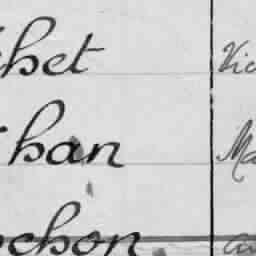 chet Vic
han Ma
chon